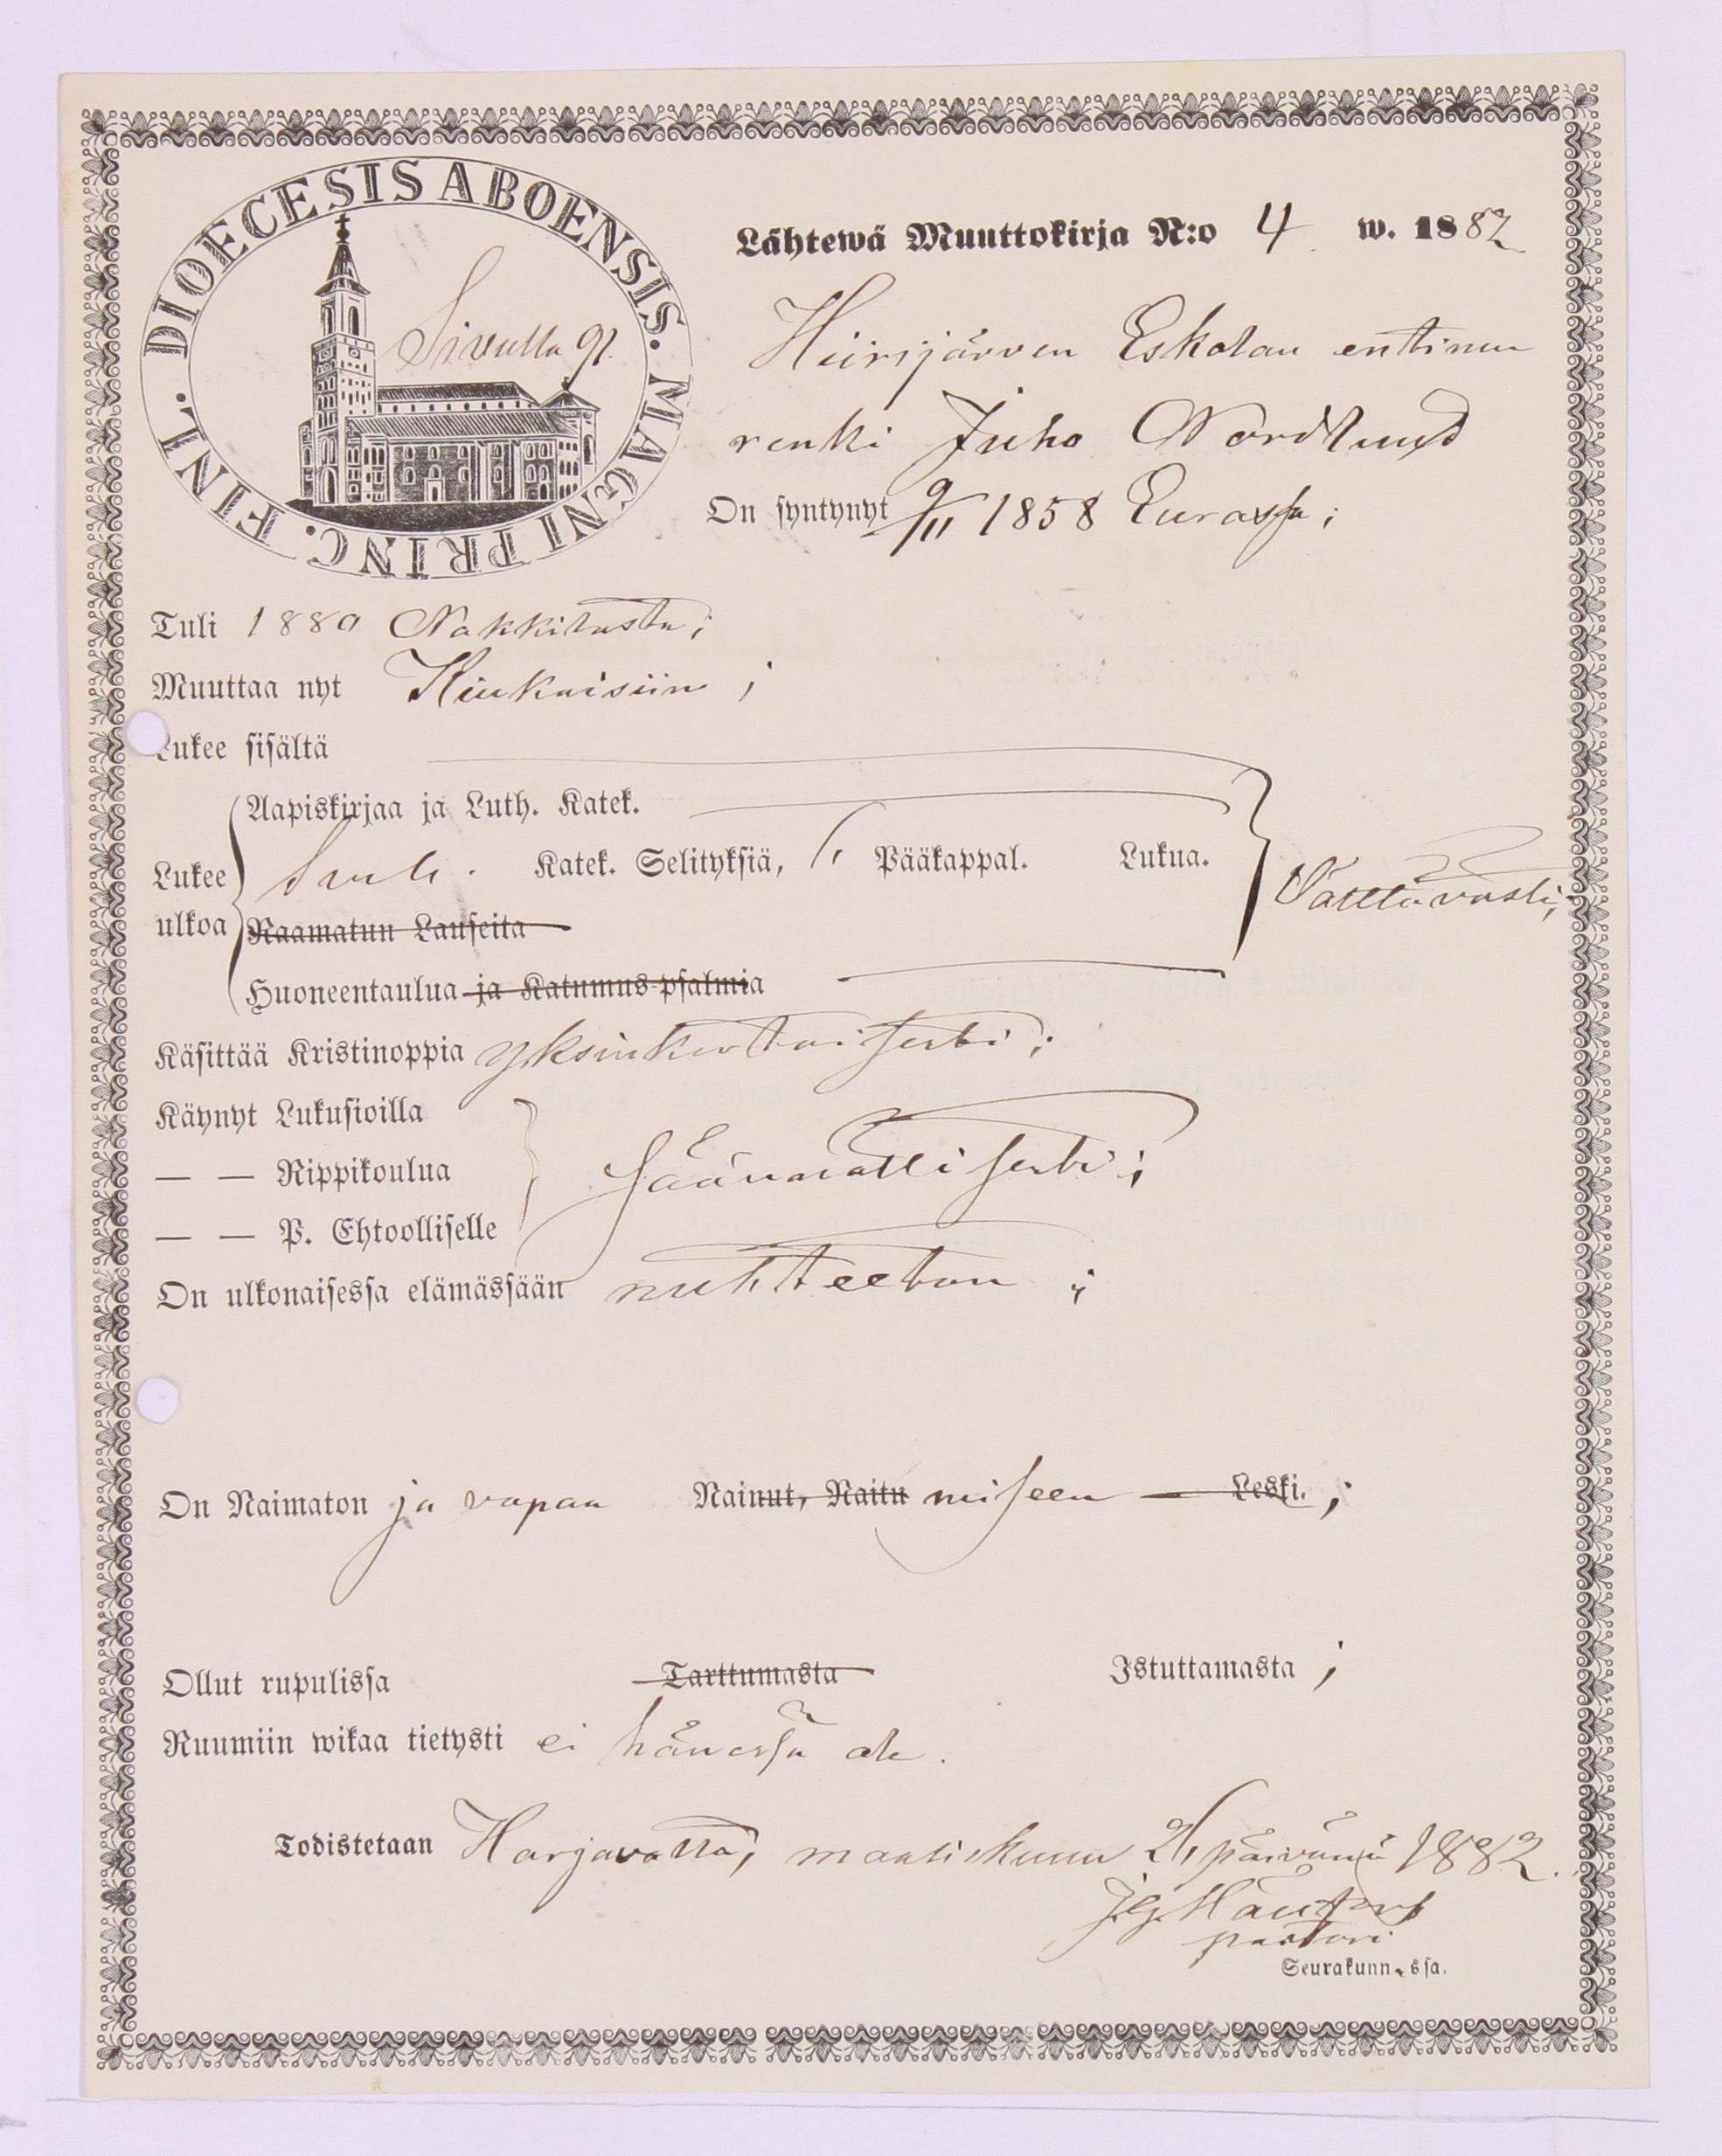 DIOECESIS ABOENSIS. MAGNI PRINC. FINL.
Sivulla 91.
Lähtewä Muuttokirja N:o 4 w. 1882
Hiirijärven Eskolan entinen
renki Juho Nordlund
On syntynyt 9/11 1858 Eurassa;
Tuli 1880 Nakkilasta;
Muuttaa nyt Kiukaisiin;
Lukee sisältä
Aapiskirjaa ja Luth. Katek.
Lukee ulkoa Katek. Selityksiä, Pääkappal. Lukua. Välttävästi;
Raamatun Lauseita
Huoneentaulua ja Katumus-psalmia
Käsittää Kristinoppia yksinkertaisesti;
Käynyt Lukusioilla
— — Rippikoulua säännöllisesti;
— — P. Ehtoolliselle
On ulkonaisessa elämässään nuhteeton;
On Naimaton ja vapaa Nainut, Naitu miseen — Leski.;
Ollut rupulissa Tarttumasta Istuttamasta;
Ruumiin wikaa tietysti ei hänessä ole.
Todistetaan Harjavalta, maaliskuun 21 päivänä 1882.
pastori
Seurakunn. ssa.